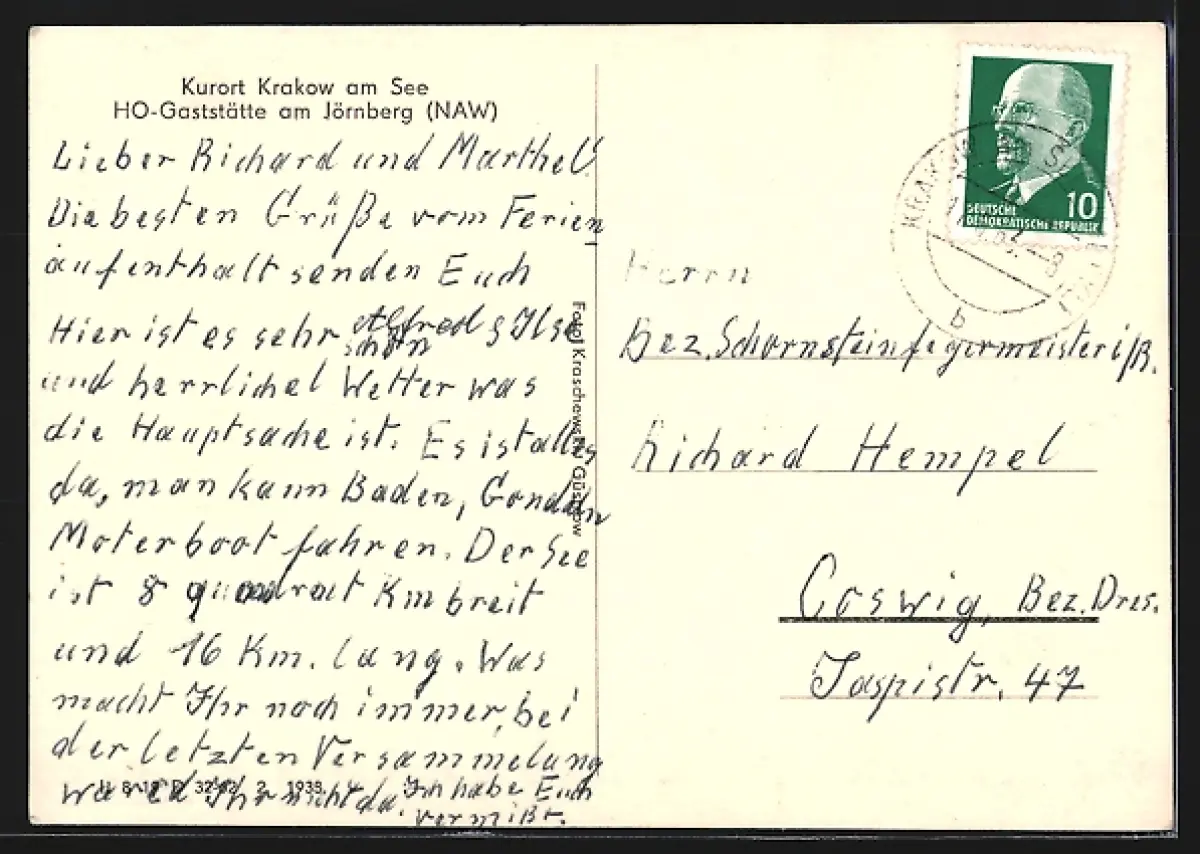 Kurort Krakow am See
HO-Gaststätte am Jörnberg (NAW)
Lieber Richard und Marthel!
Die besten Grüße vom Ferien
aufenthalt senden Euch
Alfred & Ilse
Hier ist es sehr schön
und herrlichel Wetter was
die Hauptsache ist. Es ist alles
da, man kann Baden, Gondeln
Moterboot fahren. Der See
ist 8 quadrat Km breit
und 16 Km. lang. Was
macht Ihr noch immer, bei
der letzten Versammelung
wared Ihr nicht da. Ich habe Euch
vermißt.
Foto: Kraschewski, Güstrow
DEUTSCHE
DEMOKRATISCHE REPUBLIK
10
KRAKOW
b
Herrn
Bez. Schornsteinfegermeister i/R.
Richard Hempel
Coswig, Bez. Dres.
Jaspistr. 47